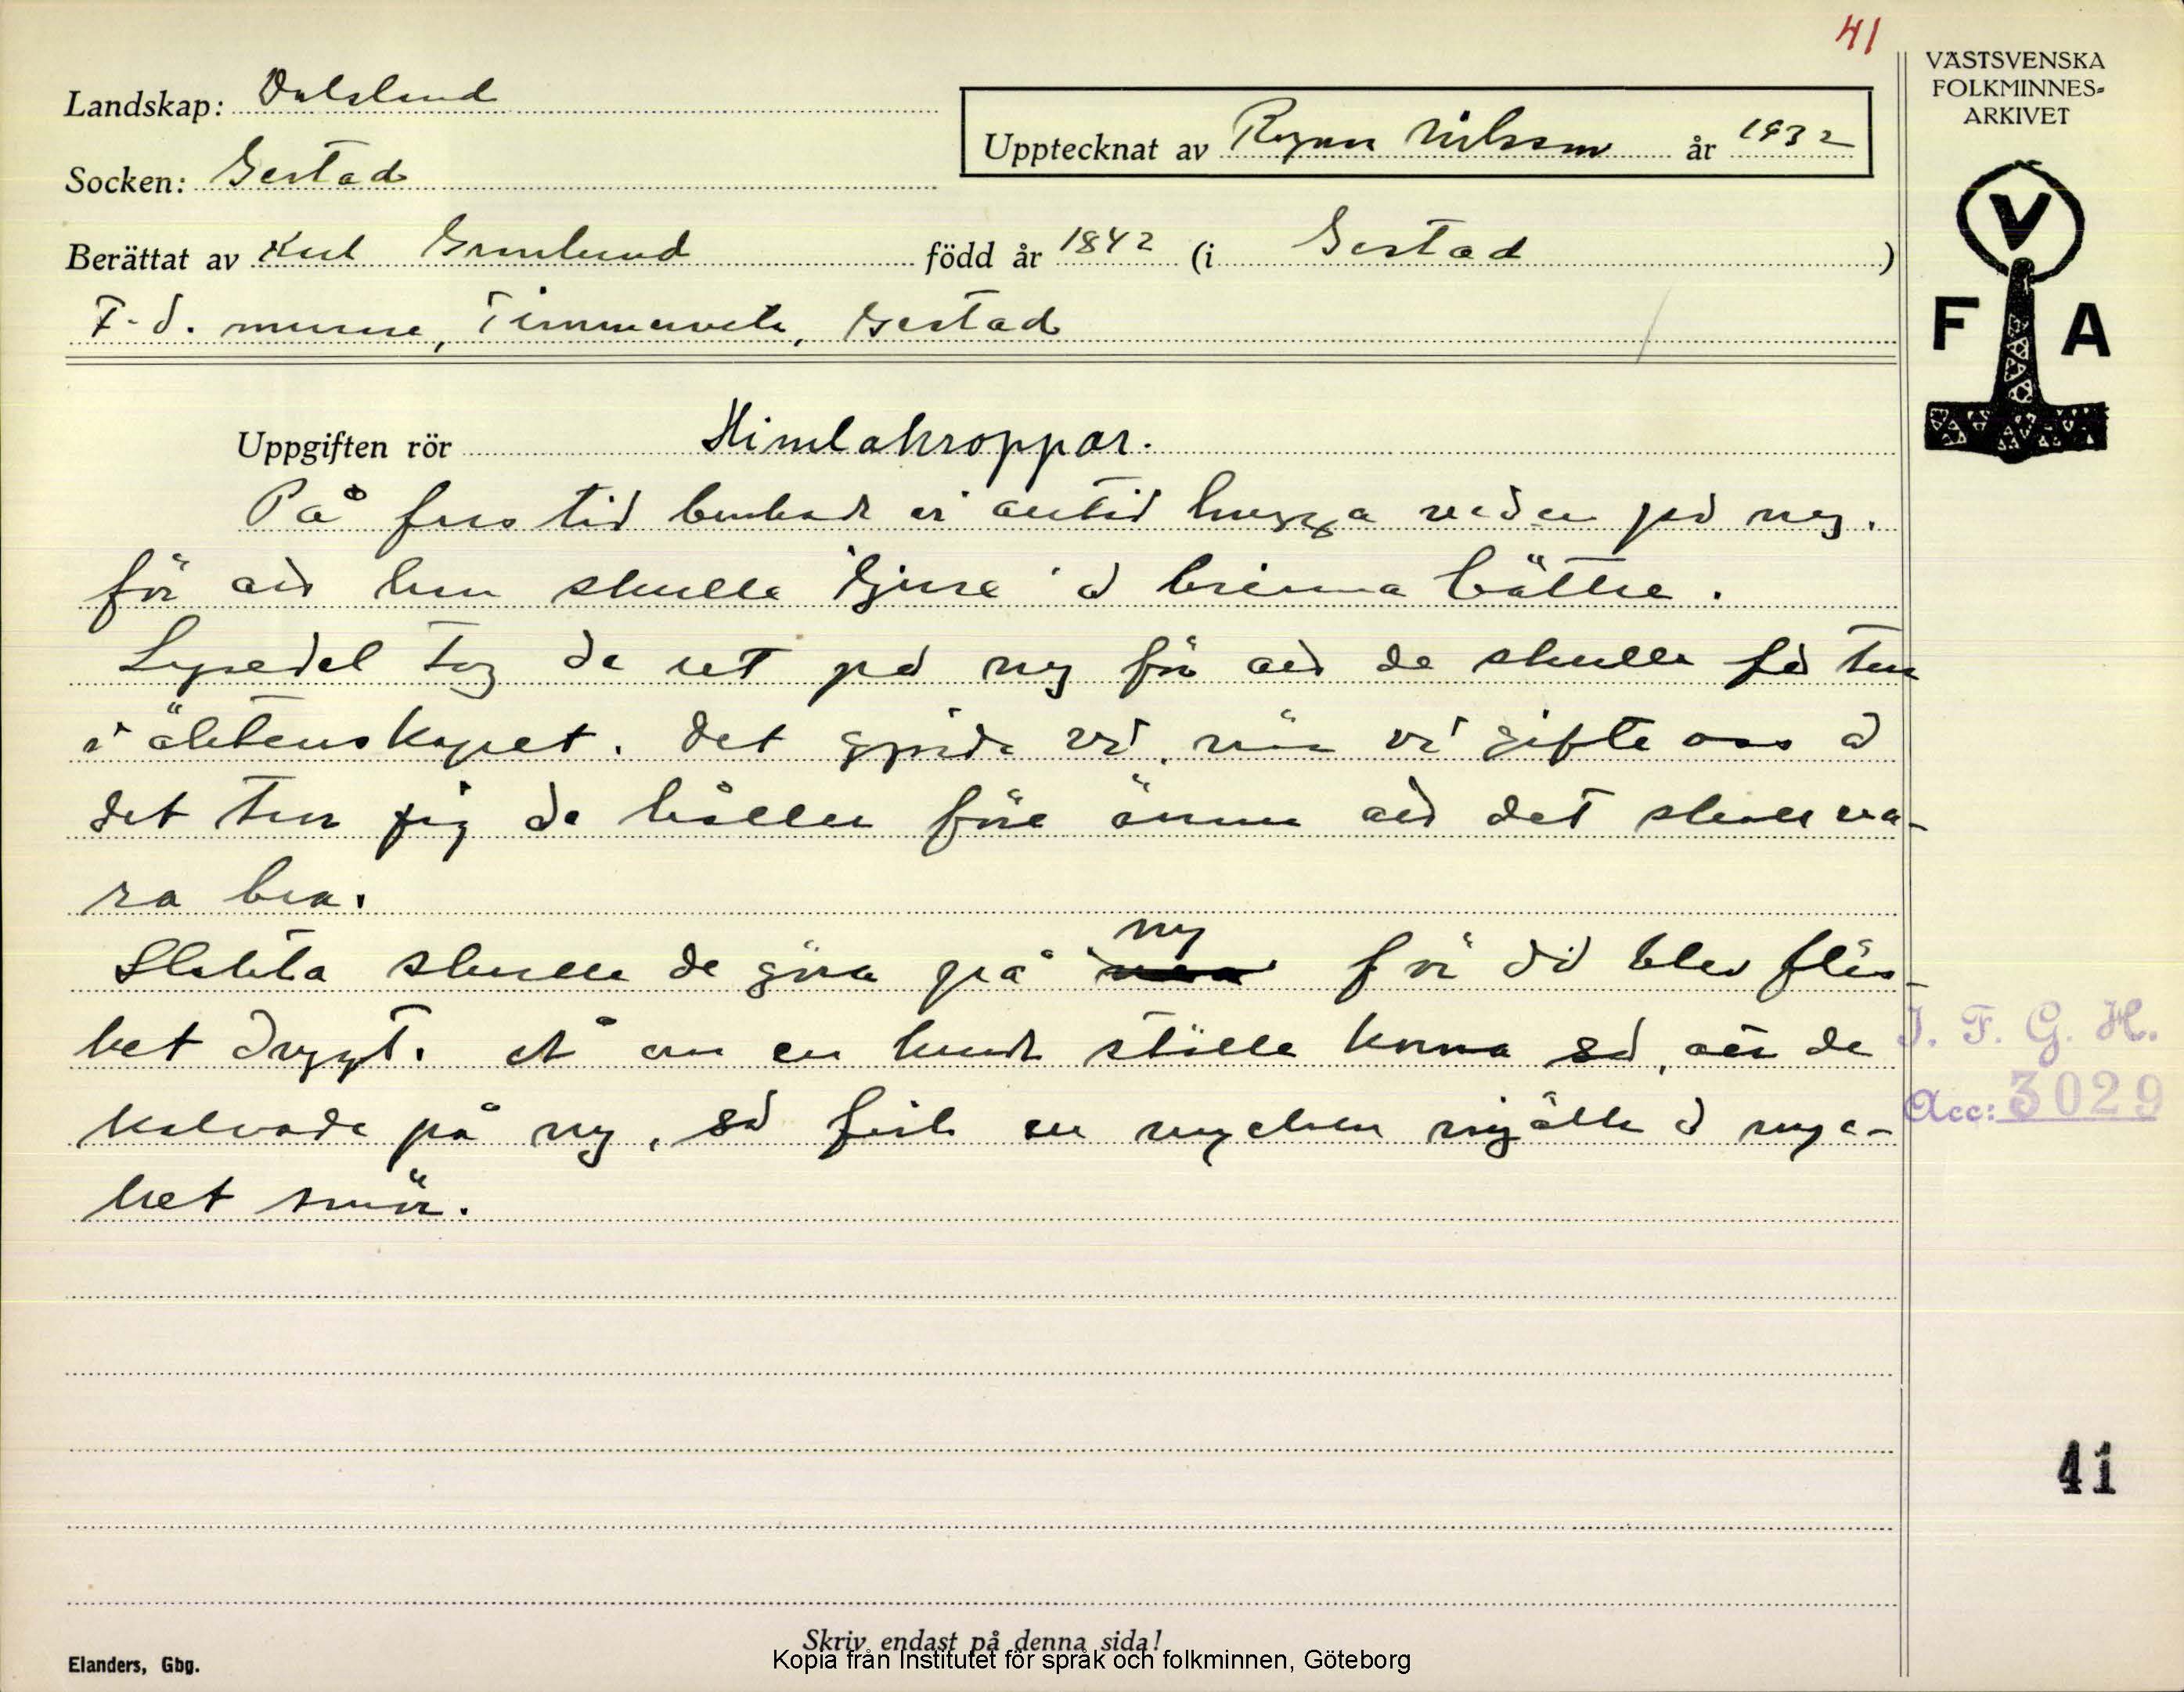 41
Landskap: Dalsland
Socken: Gestad
Upptecknat av Ragnar Nilsson år 1932
Berättat av Karl Grönlund född år 1842 (i Gestad)
F.d. murare, Timmervik, Gestad
Uppgiften rör Himlakroppar.
På fars tid brukade vi alltid hugga veden på ny.
för att hon skulle tjura å brinna bättre.
Lysedel tog de ut på ny för att de skulle få tur
i äktenskapet. Det gjorde vi, när vi gifte oss å
det tror jag de håller före ännu att det skall va-
ra bra.
Slakta skulle de göra på ny för då blev fläs-
ket drygt. Å om en kunde ställe korna så, att de
kalvade på ny, så fick en mycken mjölk å myc-
ket smör.
VÄSTSVENSKA
FOLKMINNES-
ARKIVET
V
F A
I. F. G. H.
Acc: 3029
41
Skriv endast på denna sida!
Elanders, Gbg.
Kopia från Institutet för språk och folkminnen, Göteborg